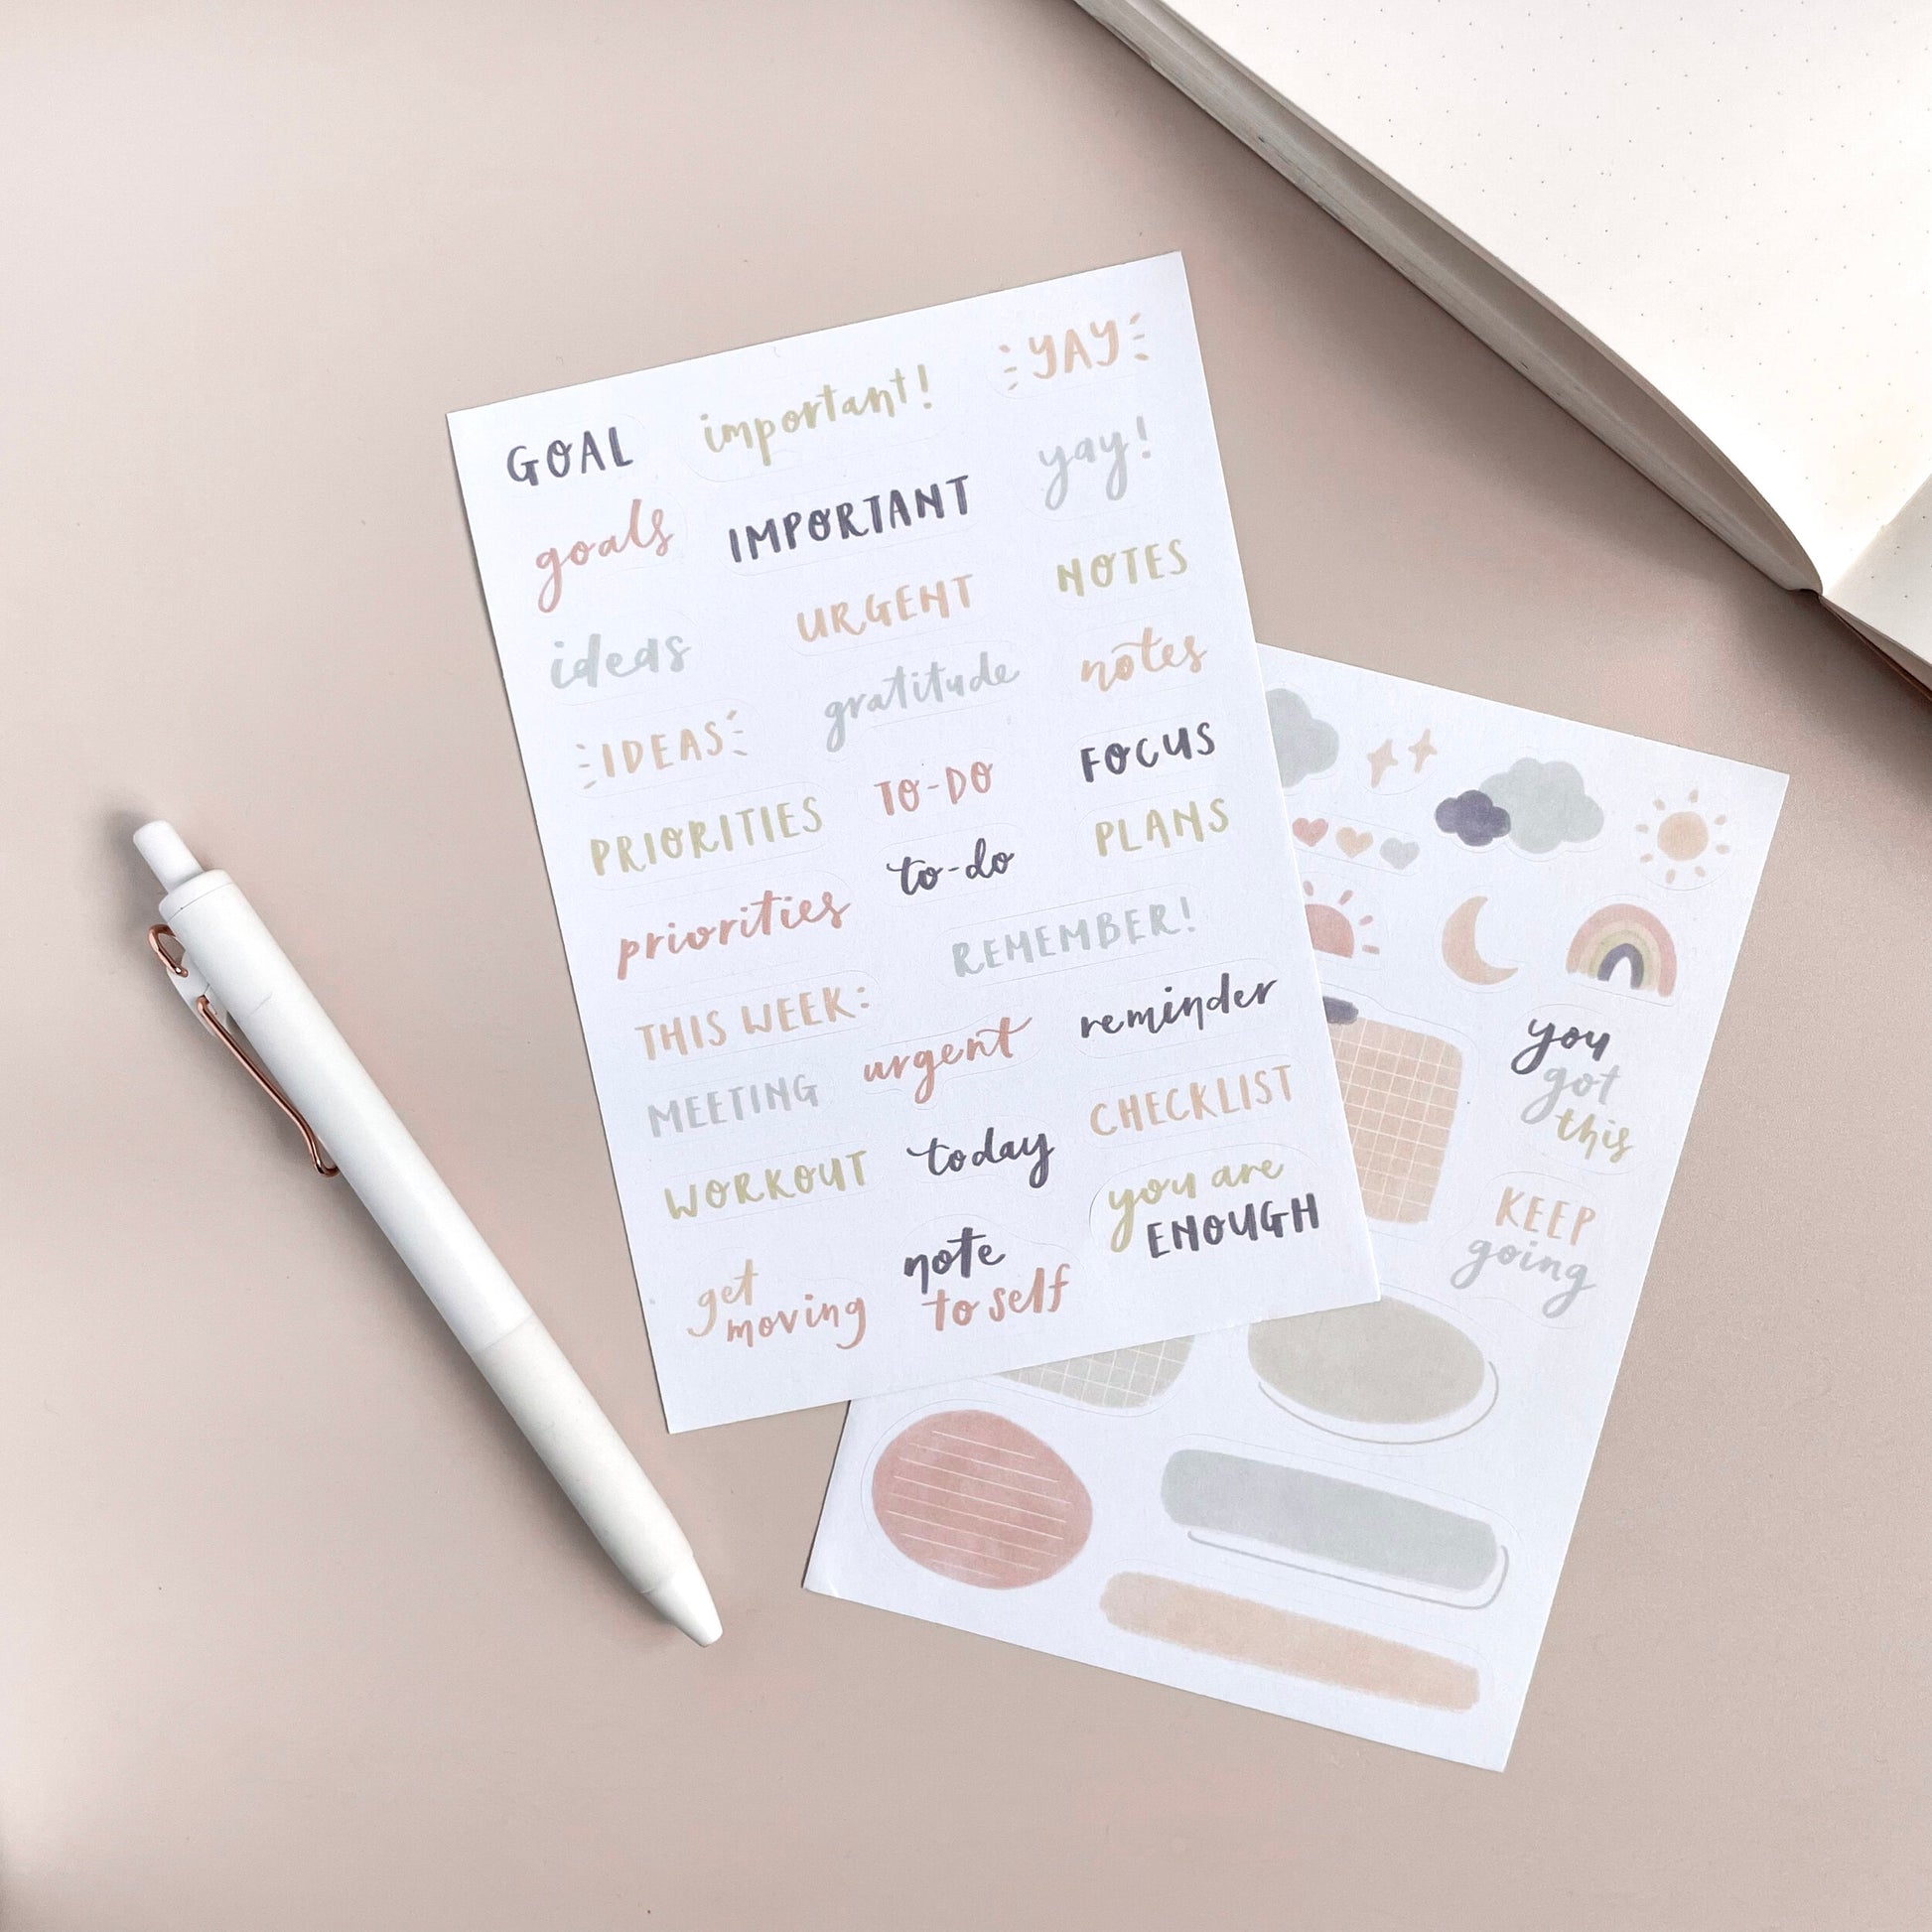 GOAL
important!
YAY
goals
IMPORTANT
yay!
ideas
URGENT
NOTES
IDEAS
gratitude
notes
PRIORITIES
TO-DO
FOCUS
priorities
to-do
PLANS
THIS WEEK:
REMEMBER!
MEETING
urgent
reminder
WORKOUT
today
CHECKLIST
get
moving
note
to self
you are
ENOUGH
you
got
this
KEEP
going